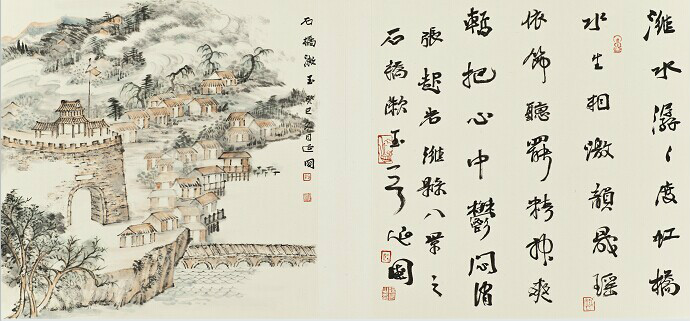 潍水潺々度虹橋
水生相激韻瑶
依飾聽罷精神爽
暫把心中鬱悶消
張起岩潍縣八景之
石橋漱玉 延國
石橋漱玉 癸巳月延國